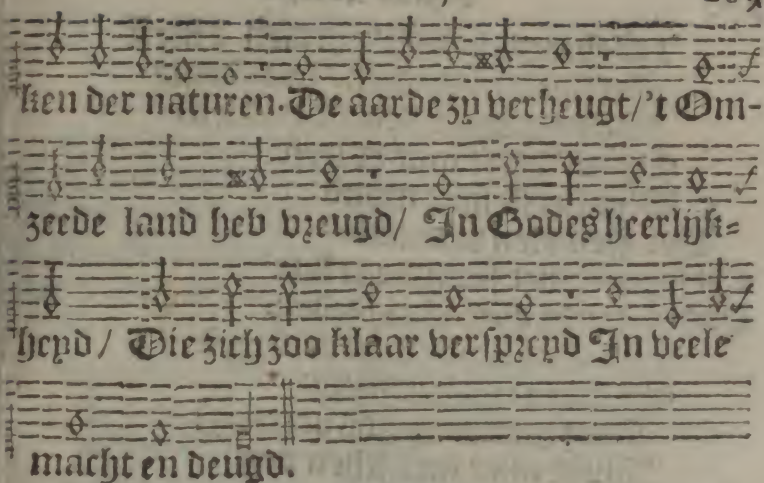 ken der naturen. De aarde zy verheugt/'t Om-
zeede land heb vreugd/ In Godes heerlijk=
heyd/ Die zich zoo klaar verspreyd In veele
macht en deugd.